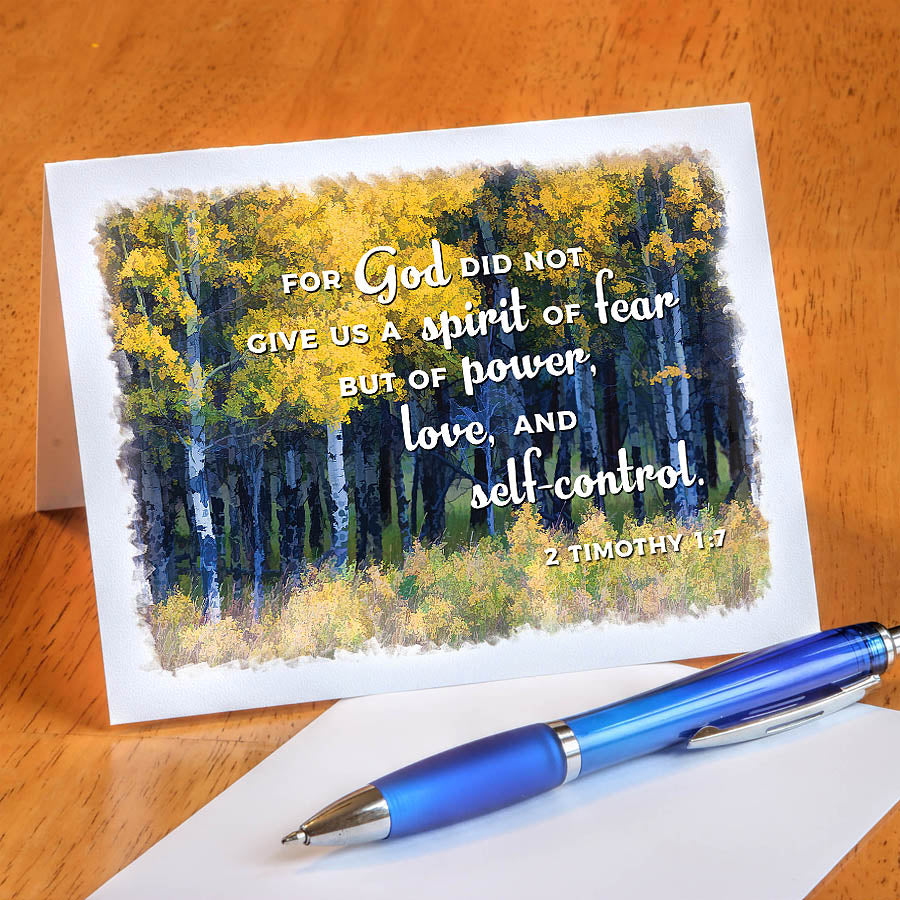 FOR God DID NOT
GIVE US A spirit OF fear
BUT OF power,
love, AND
self-control.
2 TIMOTHY 1:7